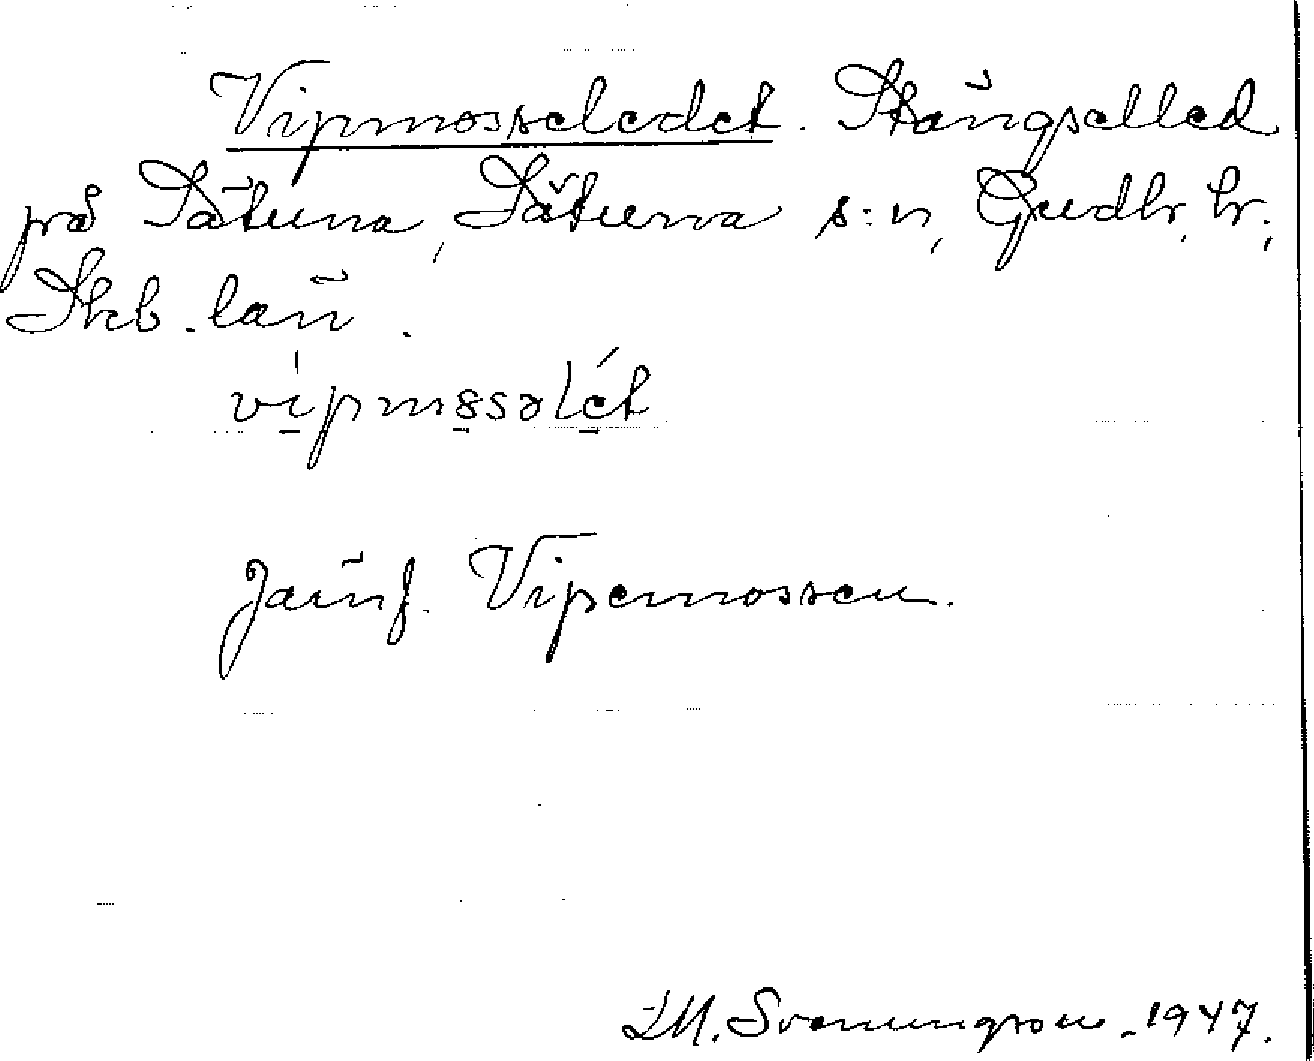 Vipmosseledet. Stängselled
på Sätuna, Sätuna s:n, Gudh. hr,
Skb. län.
vipmssəlét
Jämf. Vipemossen.
M. Svenungson. 1947.